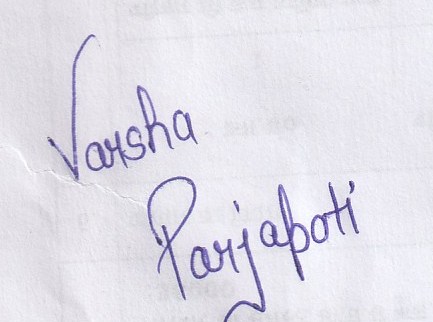 Varsha
Parjapoti